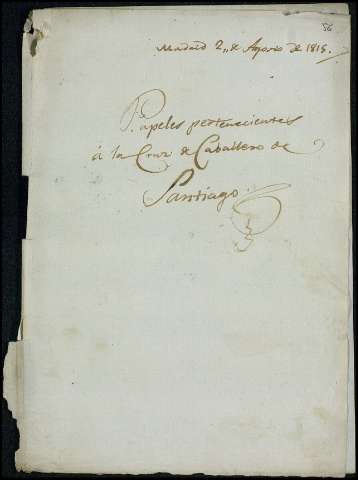 56
Madrid 2,, de Agosto de 1815.
Papeles pertenecientes
á la Cruz de Caballero de
Santiago.